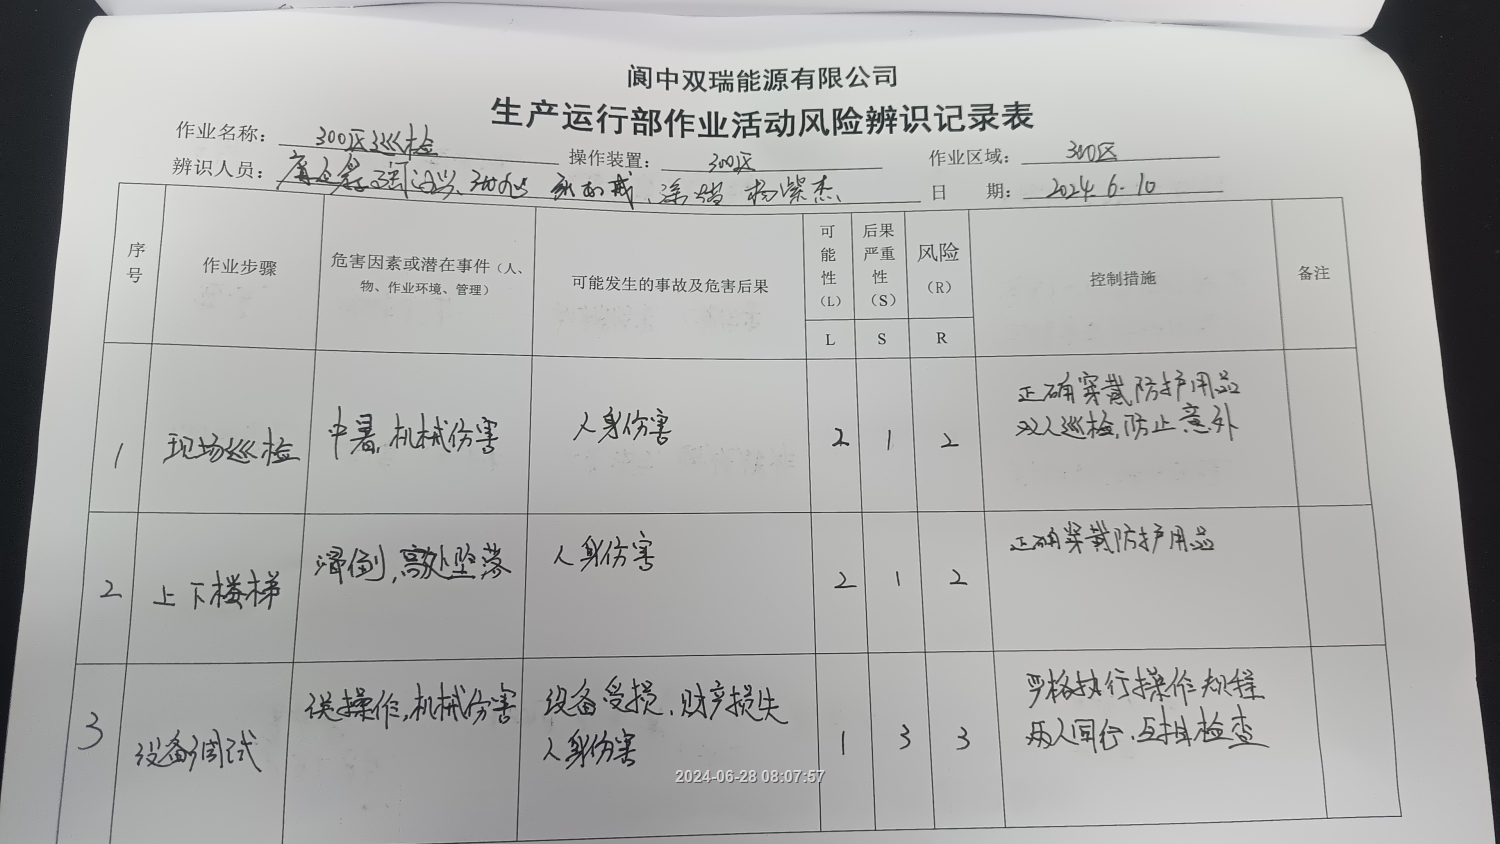 阆中双瑞能源有限公司
生产运行部作业活动风险辨识记录表
作业名称： 300区巡检 操作装置： 300区 作业区域： 300区
辨识人员： 杨紫杰 日 期： 2024.6.10
序号 作业步骤 危害因素或潜在事件（人、物、作业环境、管理） 可能发生的事故及危害后果 可能性（L） 后果严重性（S） 风险（R） 控制措施 备注
L S R
1 现场巡检 中暑，机械伤害 人身伤害 2 1 2 正确穿戴防护用品
双人巡检，防止意外
2 上下楼梯 滑倒，高处坠落 人身伤害 2 1 2 正确穿戴防护用品
3 设备调试 误操作，机械伤害 设备受损，财产损失 1 3 3 严格执行操作规程
人身伤害 两人同行，检查
2024-06-28 08:07:57